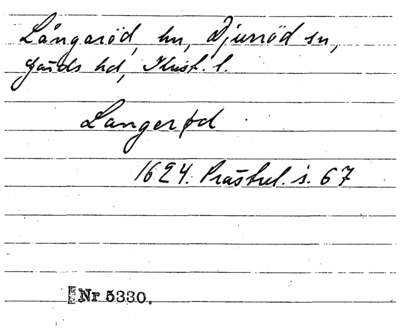 Långaröd, hn, Djurröd sn,
Gärds hd, Krist. l.
Langerød
1624. Prästrel. s. 67
Nr 5330.